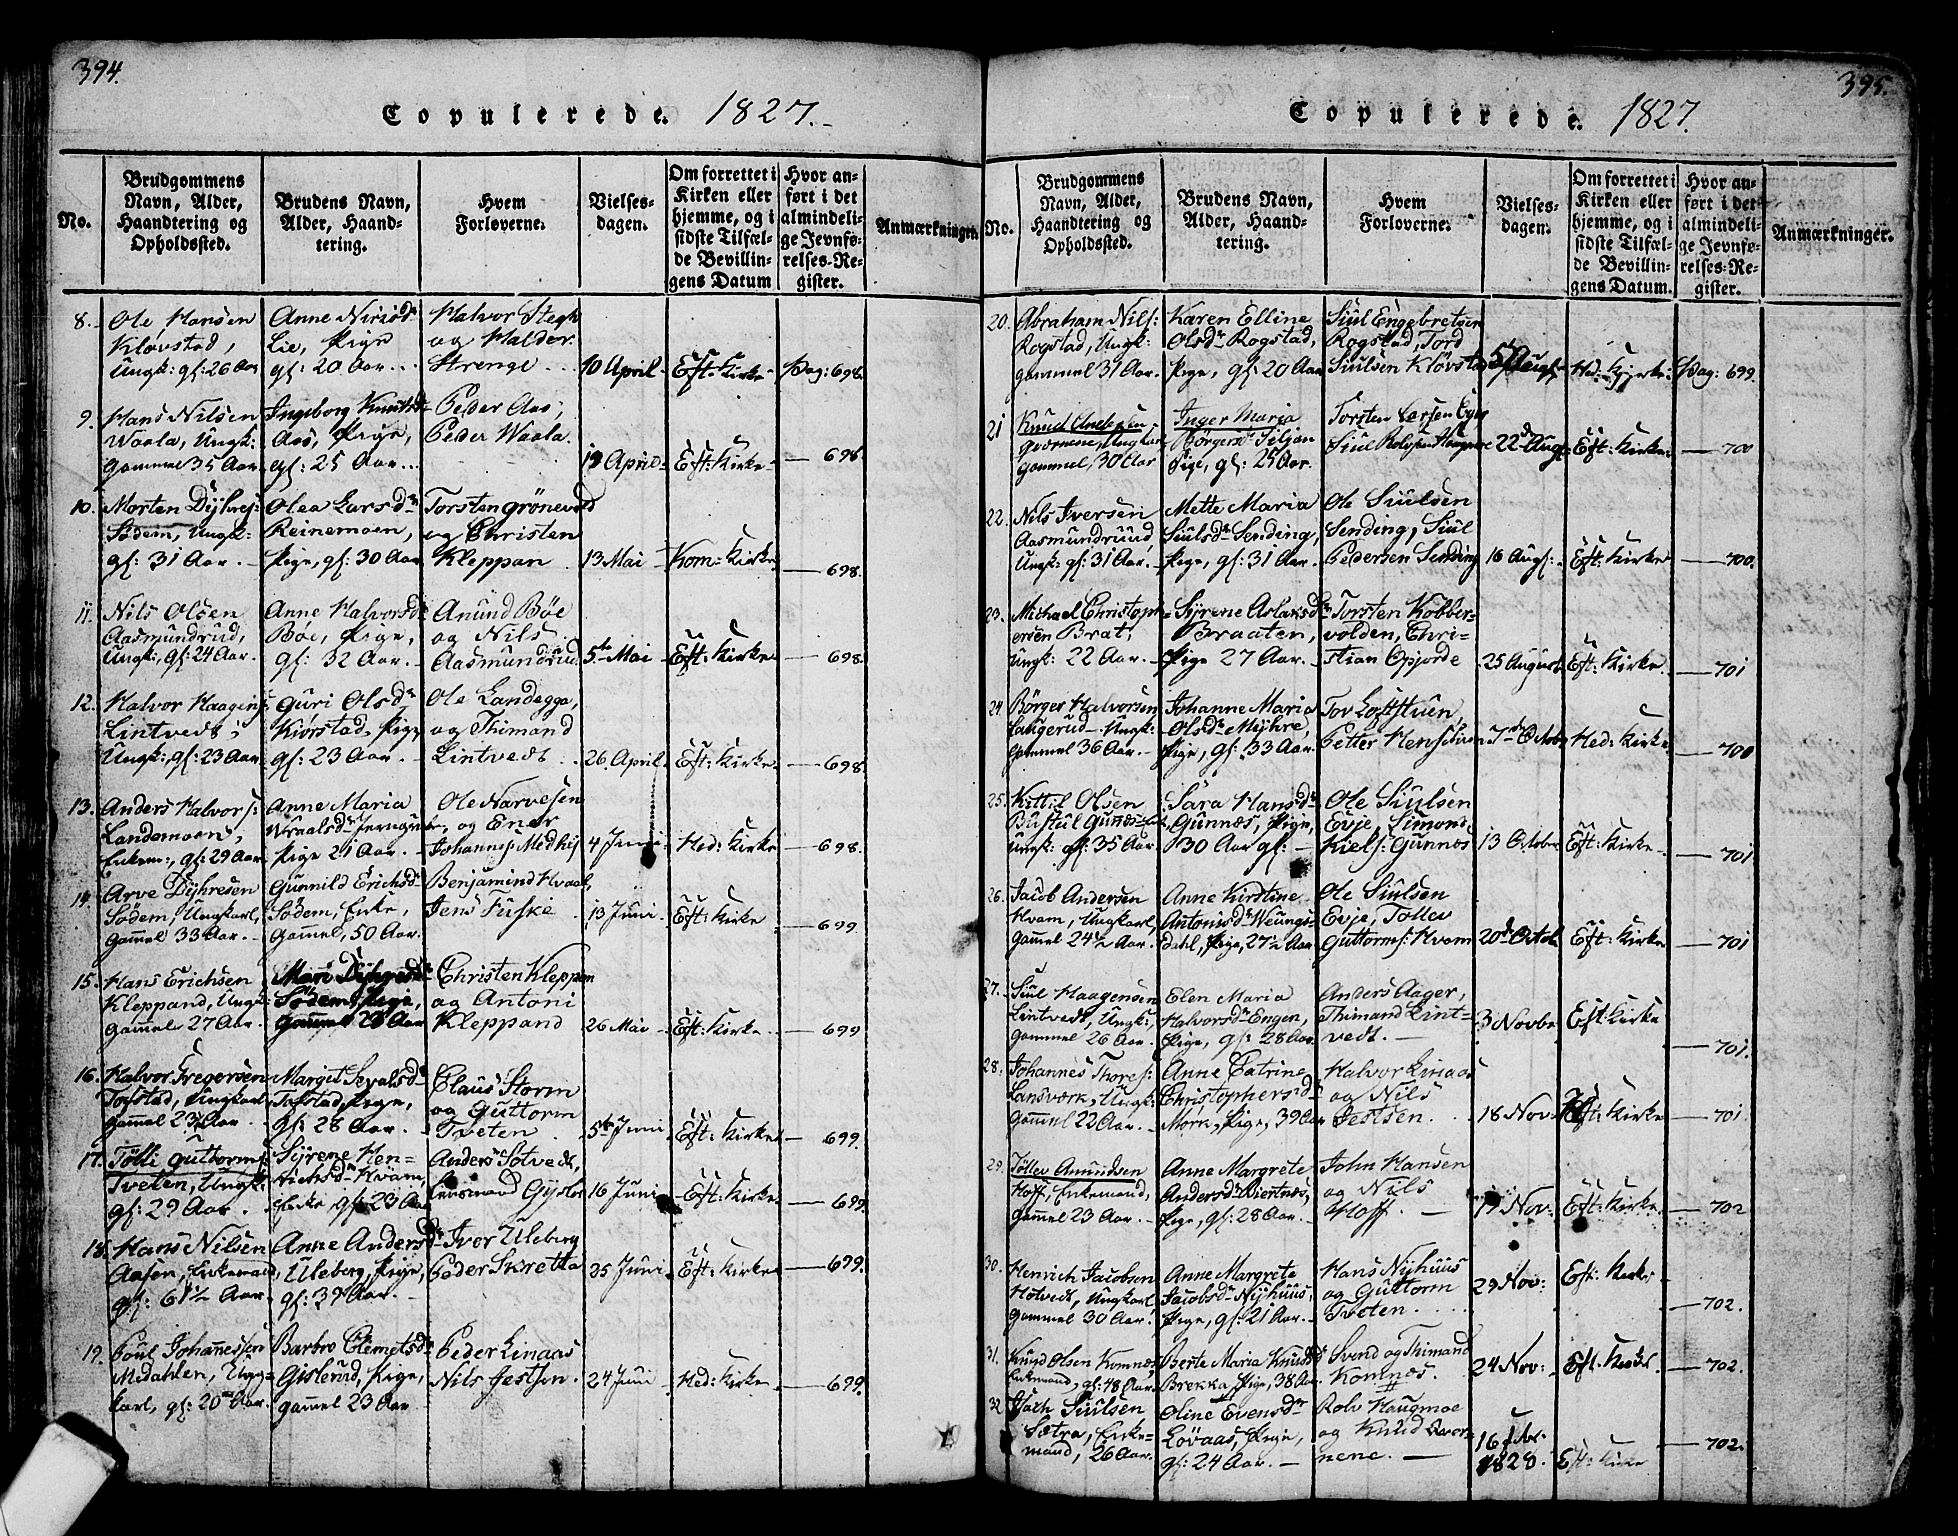 394.
Copulerede. 1827.
No.
Brudgommens
Navn, Alder,
Haandtering og
Opholdssted.
Brudens Navn,
Alder, Haand-
tering.
Hvem
Forloverne.
Vielses-
dagen.
Om forrettet i
Kirken eller
hjemme, og i
sidste Tilfæl-
de Bevillin-
gens Datum
Hvor an-
ført i det
almindeli-
ge Jevnfø-
relses-Re-
gister.
Anmærkninger.
8. Ole Hansen
Klovstad,
Ungk: gl: 26 Aar
Anne
Lie, Pige
gl: 20 Aar...
Halvor
og Halder
Strenge
10 April
Eft: Kirke
Pag: 698.
9. Hans Nilsen
Waala, Ungk:
Gammel 35 Aar
Ingeborg Knutsd
Aas, Pige,
gl: 25 Aar...
Peder Aas,
Peder Waala.
19 April
Eft: Kirke
698
10. Morten
Sødem, Ungk:
gl: 31 Aar.
Olea Larsd
Reinemoen,
Pige, gl: 30 Aar
Torsten Grönevold
og Christen
Kleppan
13 Mai
Kom: Kirke
698.
11. Nils Olsen
Aasmundrud,
Ungk:, gl: 24 Aar.
Anne Halvorsd
Böe, Pige,
gl: 32 Aar.
Anund Böe
og Nils
Aasmundrud
5te Mai
Eft: Kirke
698.
12. Halvor Haagens
Lintvedt,
Ungk:, gl: 23 Aar
Guri Olsd
Kiørstad, Pige
gl: 23 Aar.
Ole Landegga,
og Thimand
Lintvedt.
26 April
Eft: Kirke
698.
13. Anders Halvors:
Landemoen,
Enkem:, gl: 29 Aar
Anne Maria
Wraalsd
Pige 21 Aar.
Ole Narvesen
og Ener
Johannes:
4 Juni
Hed: Kirke
698.
14. Arve Dyhresen
Sødem, Ungkarl,
Gammel 33 Aar.
Gunnild Erichsd
Sødem, Enke,
Gammel, 50 Aar.
Benjamin Hvaal,
Jens Fuske
13 Juni
Eft: Kirke
699
15. Hans Erichsen
Kleppand, Ungk:
Gammel 27 Aar.
Mari
Sødem, Pige,
Gammel 28 Aar
Christen Kleppan
og Antoni
Kleppand
26 Mai
Eft: Kirke
699
16. Halvor Gregersen
Tofstad, Ungkarl,
Gammel 23 Aar.
Margit
Tofstad, Pige,
gl: 28 Aar.
Claus Storm
og Guttorm
Tveten
5te Juni
Eft: Kirke
699.
17. Tölli Guttorms:
Tveten, Ungk:
gl: 29 Aar.
Syrene Hen-
richsd Kvam,
Enke, gl: 23 Aar
Anders Sotvedt,
16 Juni
Eft: Kirke
699.
18. Hans Nilsen
Aasen, Enkemand,
gl: 61½ Aar.
Anne Andersd
Uleberg, Pige,
gl: 39 Aar.
Iver Uleberg
Peder Skretta
35 Juni
Eft: Kirke
699.
19. Poul Johannessen
Medahlen, Ung-
karl, gl: 20 Aar.
Barbro Clemetsd
Gislerud, Pige,
Gammel 23 Aar
Peder Linaas
Nils Jestsen.
24 Juni
Hed: Kirke
699.
395.
Copulerede. 1827.
No.
Brudgommens
Navn, Alder,
Haandtering og
Opholdssted.
Brudens Navn,
Alder, Haand-
tering.
Hvem
Forloverne.
Vielses-
dagen.
Om forrettet i
Kirken eller
hjemme, og i
sidste Tilfæl-
de Bevillin-
gens Datum.
Hvor an-
ført i det
almindeli-
ge Jevnfø-
relses-Re-
gister.
Anmærkninger.
20. Abraham Nils:
Rogstad, Ungk:
Gammel 31 Aar.
Karen Elline
Olsd Rogstad,
Pige, gl: 20 Aar
Siul Engebretsen
Rogstad, Tord
Siulsen Klövstad
Hed: Kirke
Pag: 699.
21 Knud
Ungkarl
Gammel, 30 Aar
Inger Maria
Börgersd Siljan
Pige, gl: 25 Aar.
Torsten Larsen
Siul
22d Aug:
Eft: Kirke
700
22. Nils Iversen
Aasmundrund,
Ungk: gl: 31 Aar.
Mette Maria
Siulsd Sending,
Pige, gl: 31 Aar.
Ole Siulsen
Sending, Siul
Pedersen Sending
16 Aug:
Eft: Kirke
700.
23. Michael Christoph-
ersen Brat,
Ungk: 22 Aar.
Syrene Aslaksd
Braaten,
Pige 27 Aar.
Torsten Kobber-
volden, Chri-
stian Opjorde
25 August
Eft: Kirke
701
24. Börger Halvorsen
Laugerud, Ungk:
Gammel 36 Aar.
Johanne Maria
Olsd Myhre,
Pige, gl: 33 Aar
Tov Loftstuen,
Petter
Octob
Hed: Kirke
700
25. Kittil Olsen
Ungk: gl: 35 Aar
Sara Hansd
Gunnæs, Pige,
30 Aar gl:
Ole Siulsen
Evje, Simond
Kiels: Gunnæs
13 October
Eft: Kirke
701
26. Jacob Andersen
Hvam, Ungkarl,
Gammel 24½ Aar.
Anne Kirstine
Antonisd
dahl, Pige, 27½ Aar
Ole Siulsen
Evje, Tollev
Guttorms: Hvam
20d Octob
Eft: Kirke
701
27. Siul Haagensen
Lintvedt, Ungk:
Gammel 26 Aar.
Elen Maria
Halvorsd Engen,
Pige, gl: 28 Aar.
Anders Aager,
Thimand Lint-
vedt.
3 Novbr
Eft: Kirke
701.
28. Johannes Thores:
Lansværk, Ungk:
Gammel 22 Aar.
Anne Catrine
Christophersd
Mörk, Pige, 39 Aar
Halvor Linaas
og Nils
Jestsen.
18 Nov
Eft: Kirke
701
29. Töllev Amundsen
Hoff, Enkemand,
Gammel 23 Aar.
Anne Margrete
Andersd
Pige, gl: 28 Aar.
John Hansen
og Nils
Hoff.
19 Nov:
Eft: Kirke
702
30. Henrich Jacobsen
Hotvedt, Ungkarl,
Gammel 30 Aar.
Anne Margrete
Jacobsd Nyhuus,
Pige, gl: 21 Aar.
Hans Nyhuus
og Guttorm
Tveten.
29 Nov:
Eft: Kirke
702.
31. Knud Olsen Komnæs,
Enkemand, gl: 48 Aar.
Berte Maria Knudsd
Brekka, Pige, 38 Aar
Svend og Thimand
Komnæs.
24 Nov:
Eft: Kirke
702.
32 Siulsen
Sætra, Enke-
mand, 26 Aar.
Oline Evensd
Lövaas, Pige,
gl: 24 Aar.
Rolv Haugmoe
og Knud
nene.
16
1828.
Eft: Kirke
702.